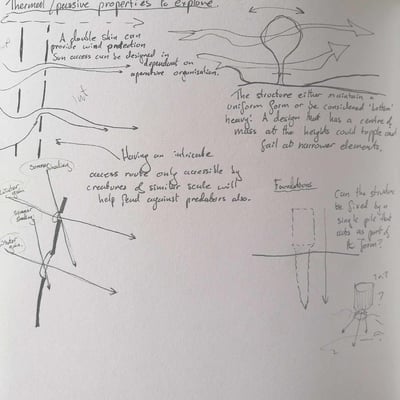 Thermal / passive properties to explore.
A double skin can
provide wind protection
Sun access can be designed in
dependent on
aperture organisation.
int
The structure either maintain a
uniform form or be considered 'bottom'
heavy. A design that has a centre of
mass at the heights could topple and
fail at narrower elements.
Having an intricate
access route only accessible by
creatures of similar scale will
help fend against predators also.
Summer
Winter
gain.
Summer
Winter
gain.
Foundations
Can the structure
be fixed by a
single pile that
acts as part of
its form?
?
?